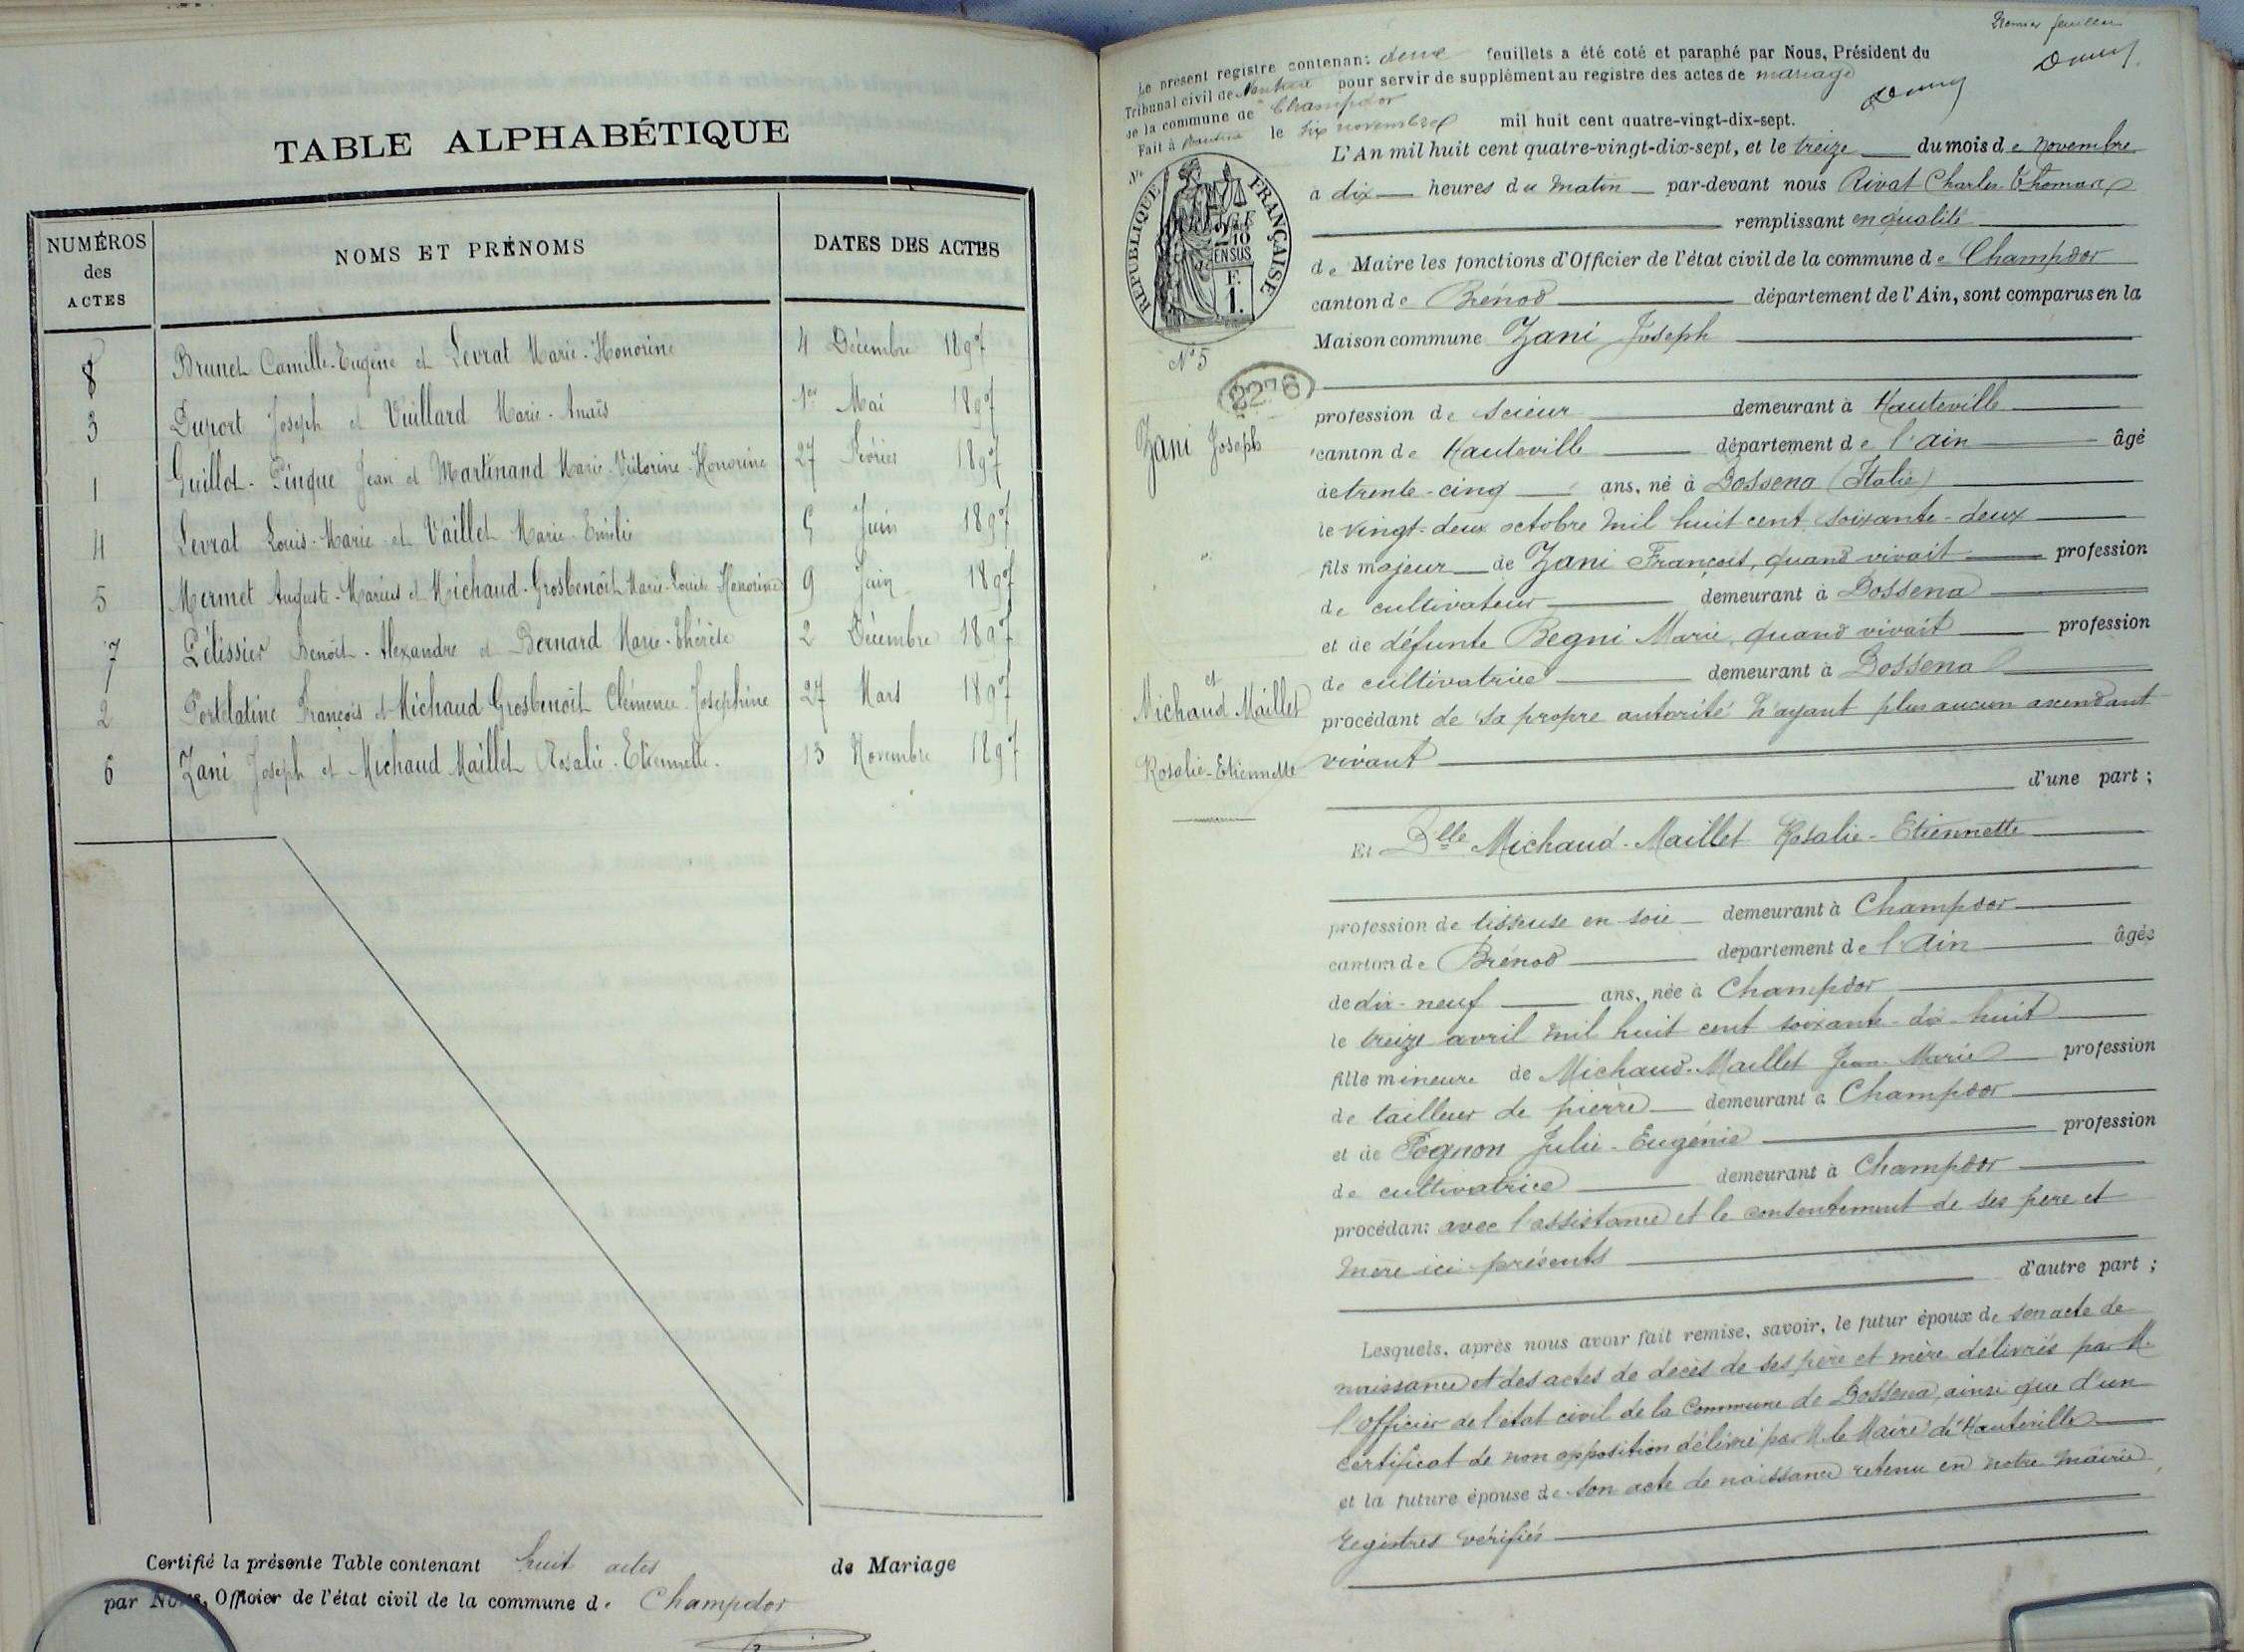 TABLE ALPHABÉTIQUE
NUMÉROS des ACTES
NOMS ET PRÉNOMS
DATES DES ACTES
8 Brunet Camille-Eugène et Levrat Marie-Honorine 4 Décembre 1897
3 Duport Joseph et Vuillard Marie-Anaïs 1er Mai 1897
1 Guillot-Pinque Jean et Martinand Marie-Victorine-Honorine 27 Février 1897
4 Levrat Louis-Marie et Vaillet Marie-Emilie 5 Juin 1897
5 Mermet Auguste-Marius et Michaud-Grosbenoît Marie-Louise Honorine 9 Juin 1897
7 Pélissier Benoît-Alexandre et Bernard Marie-Thérèse 2 Décembre 1897
2 Portelatine François et Michaud Grosbenoît Clémence Josephine 27 Mars 1897
6 Zani Joseph et Michaud Maillet Rosalie-Etiennette. 13 Novembre 1897
Certifié la présente Table contenant huit actes de Mariage
par Nous, Officier de l'état civil de la commune de Champdor
Premier feuillet
Le présent registre contenant deux feuillets a été coté et paraphé par Nous, Président du
Tribunal civil de Nantua pour servir de supplément au registre des actes de mariage
de la commune de Champdor
Fait à Nantua le dix novembre mil huit cent quatre-vingt-dix-sept.
L'An mil huit cent quatre-vingt-dix-sept, et le treize du mois de Novembre
à dix heures du matin par-devant nous Rivat Charles Thomas
remplissant en qualité
de Maire les fonctions d'Officier de l'état civil de la commune de Champdor
canton de Brénod département de l'Ain, sont comparus en la
Maison commune Zani Joseph
RÉPUBLIQUE FRANÇAISE
2/10
EN SUS
F.
1.
N° 5
2276
Zani Joseph
et
Michaud Maillet
Rosalie-Etiennette
profession de scieur demeurant à Hauteville
canton de Hauteville département de l'Ain âgé
de trente-cinq ans, né à Dossena (Italie)
le vingt-deux octobre mil huit cent soixante-deux
fils majeur de Zani François, quand vivait profession
de cultivateur demeurant à Dossena
et de défunte Begni Marie, quand vivait profession
de cultivatrice demeurant à Dossena
procédant de sa propre autorité n'ayant plus aucun ascendant
vivant
d'une part ;
Et Dlle Michaud-Maillet Rosalie-Etiennette
profession de tisseuse en soie demeurant à Champdor
canton de Brénod département de l'Ain âgée
de dix-neuf ans, née à Champdor
le treize avril mil huit cent soixante-dix-huit
fille mineure de Michaud-Maillet Jean-Marie profession
de tailleur de pierre demeurant à Champdor
et de Pognon Julie-Eugénie profession
de cultivatrice demeurant à Champdor
procédant avec l'assistance et le consentement de ses père et
mère ici présents
d'autre part ;
Lesquels, après nous avoir fait remise, savoir, le futur époux de son acte de
naissance et des actes de décès de ses père et mère délivrés par M.
l'officier de l'état civil de la commune de Dossena, ainsi que d'un
certificat de non opposition délivré par M. le Maire de Hauteville
et la future épouse de son acte de naissance retenu en notre mairie,
registres vérifiés